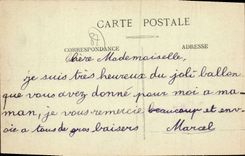 CARTE POSTALE
CORRESPONDANCE ADRESSE
Chère Mademoiselle,
je suis très heureux du joli ballon
que vous avez donné pour moi a ma-
man, je vous remercie beaucoup et env-
oie a tous de gros baisers Marcel